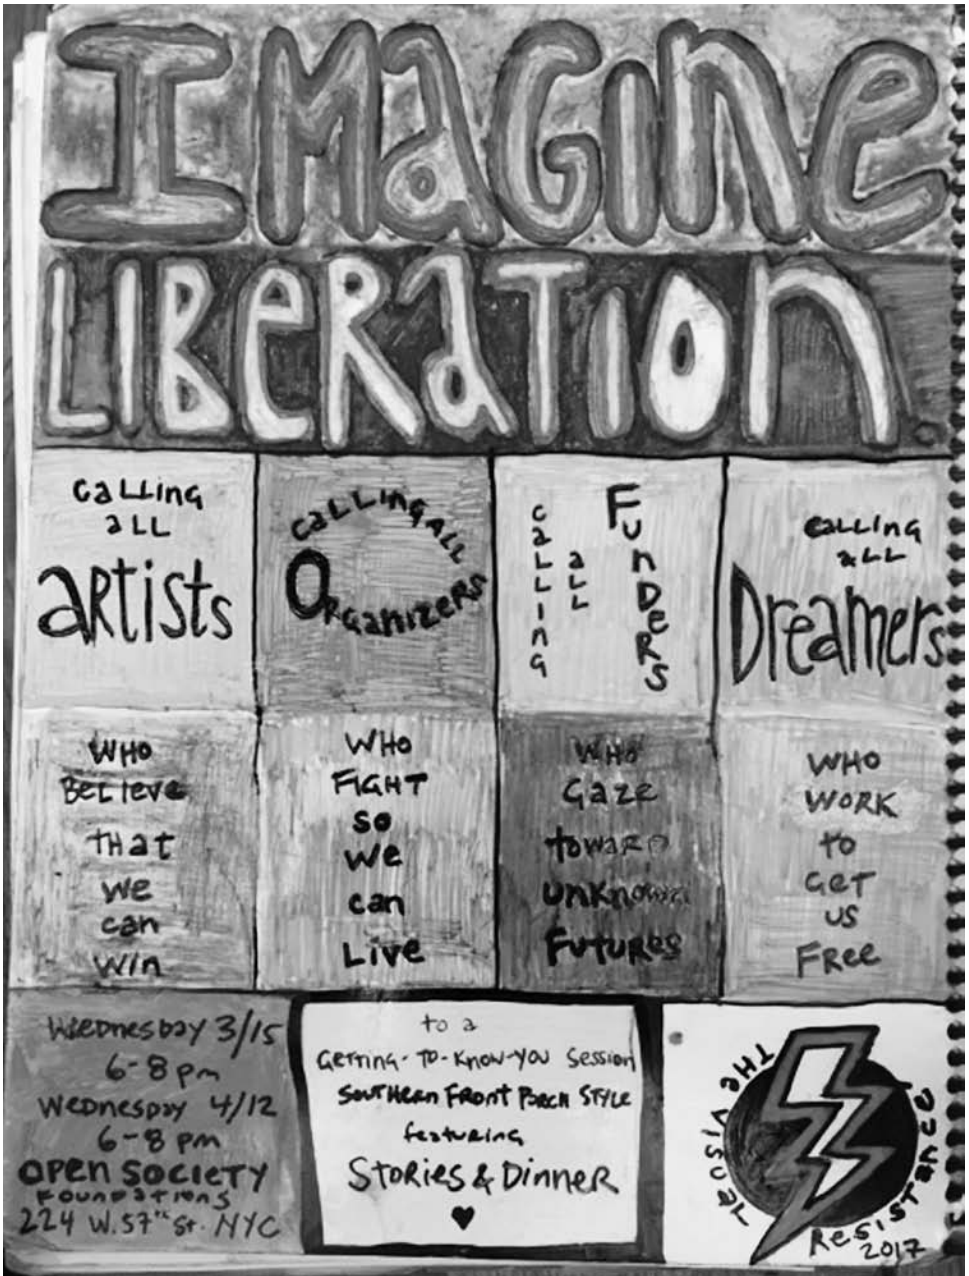 IMaGine
LIBeRaTIOn.
caLLing
aLL
aRtists
caLLing ALL
ORganizeRs
caLLing
aLL
FunDeRs
caLLing
aLL
Dreamers
WHO
BeLieve
THat
we
can
win
WHO
FIGHT
so
we
can
Live
WHO
Gaze
towaRD
unknown
FutuRes
WHO
WORK
to
Get
us
FRee
WeDnesDay 3/15
6-8 pm
WeDnesDay 4/12
6-8 pm
Open Society
FounDations
224 W. 57th St. NYC
to a
GettinG-TO-KnOW-YOU Session
SoutHeRn FRont PoRcH STYLE
featuRinG
StoRies & Dinner
♥
THe VisuaL
Resistance
2017